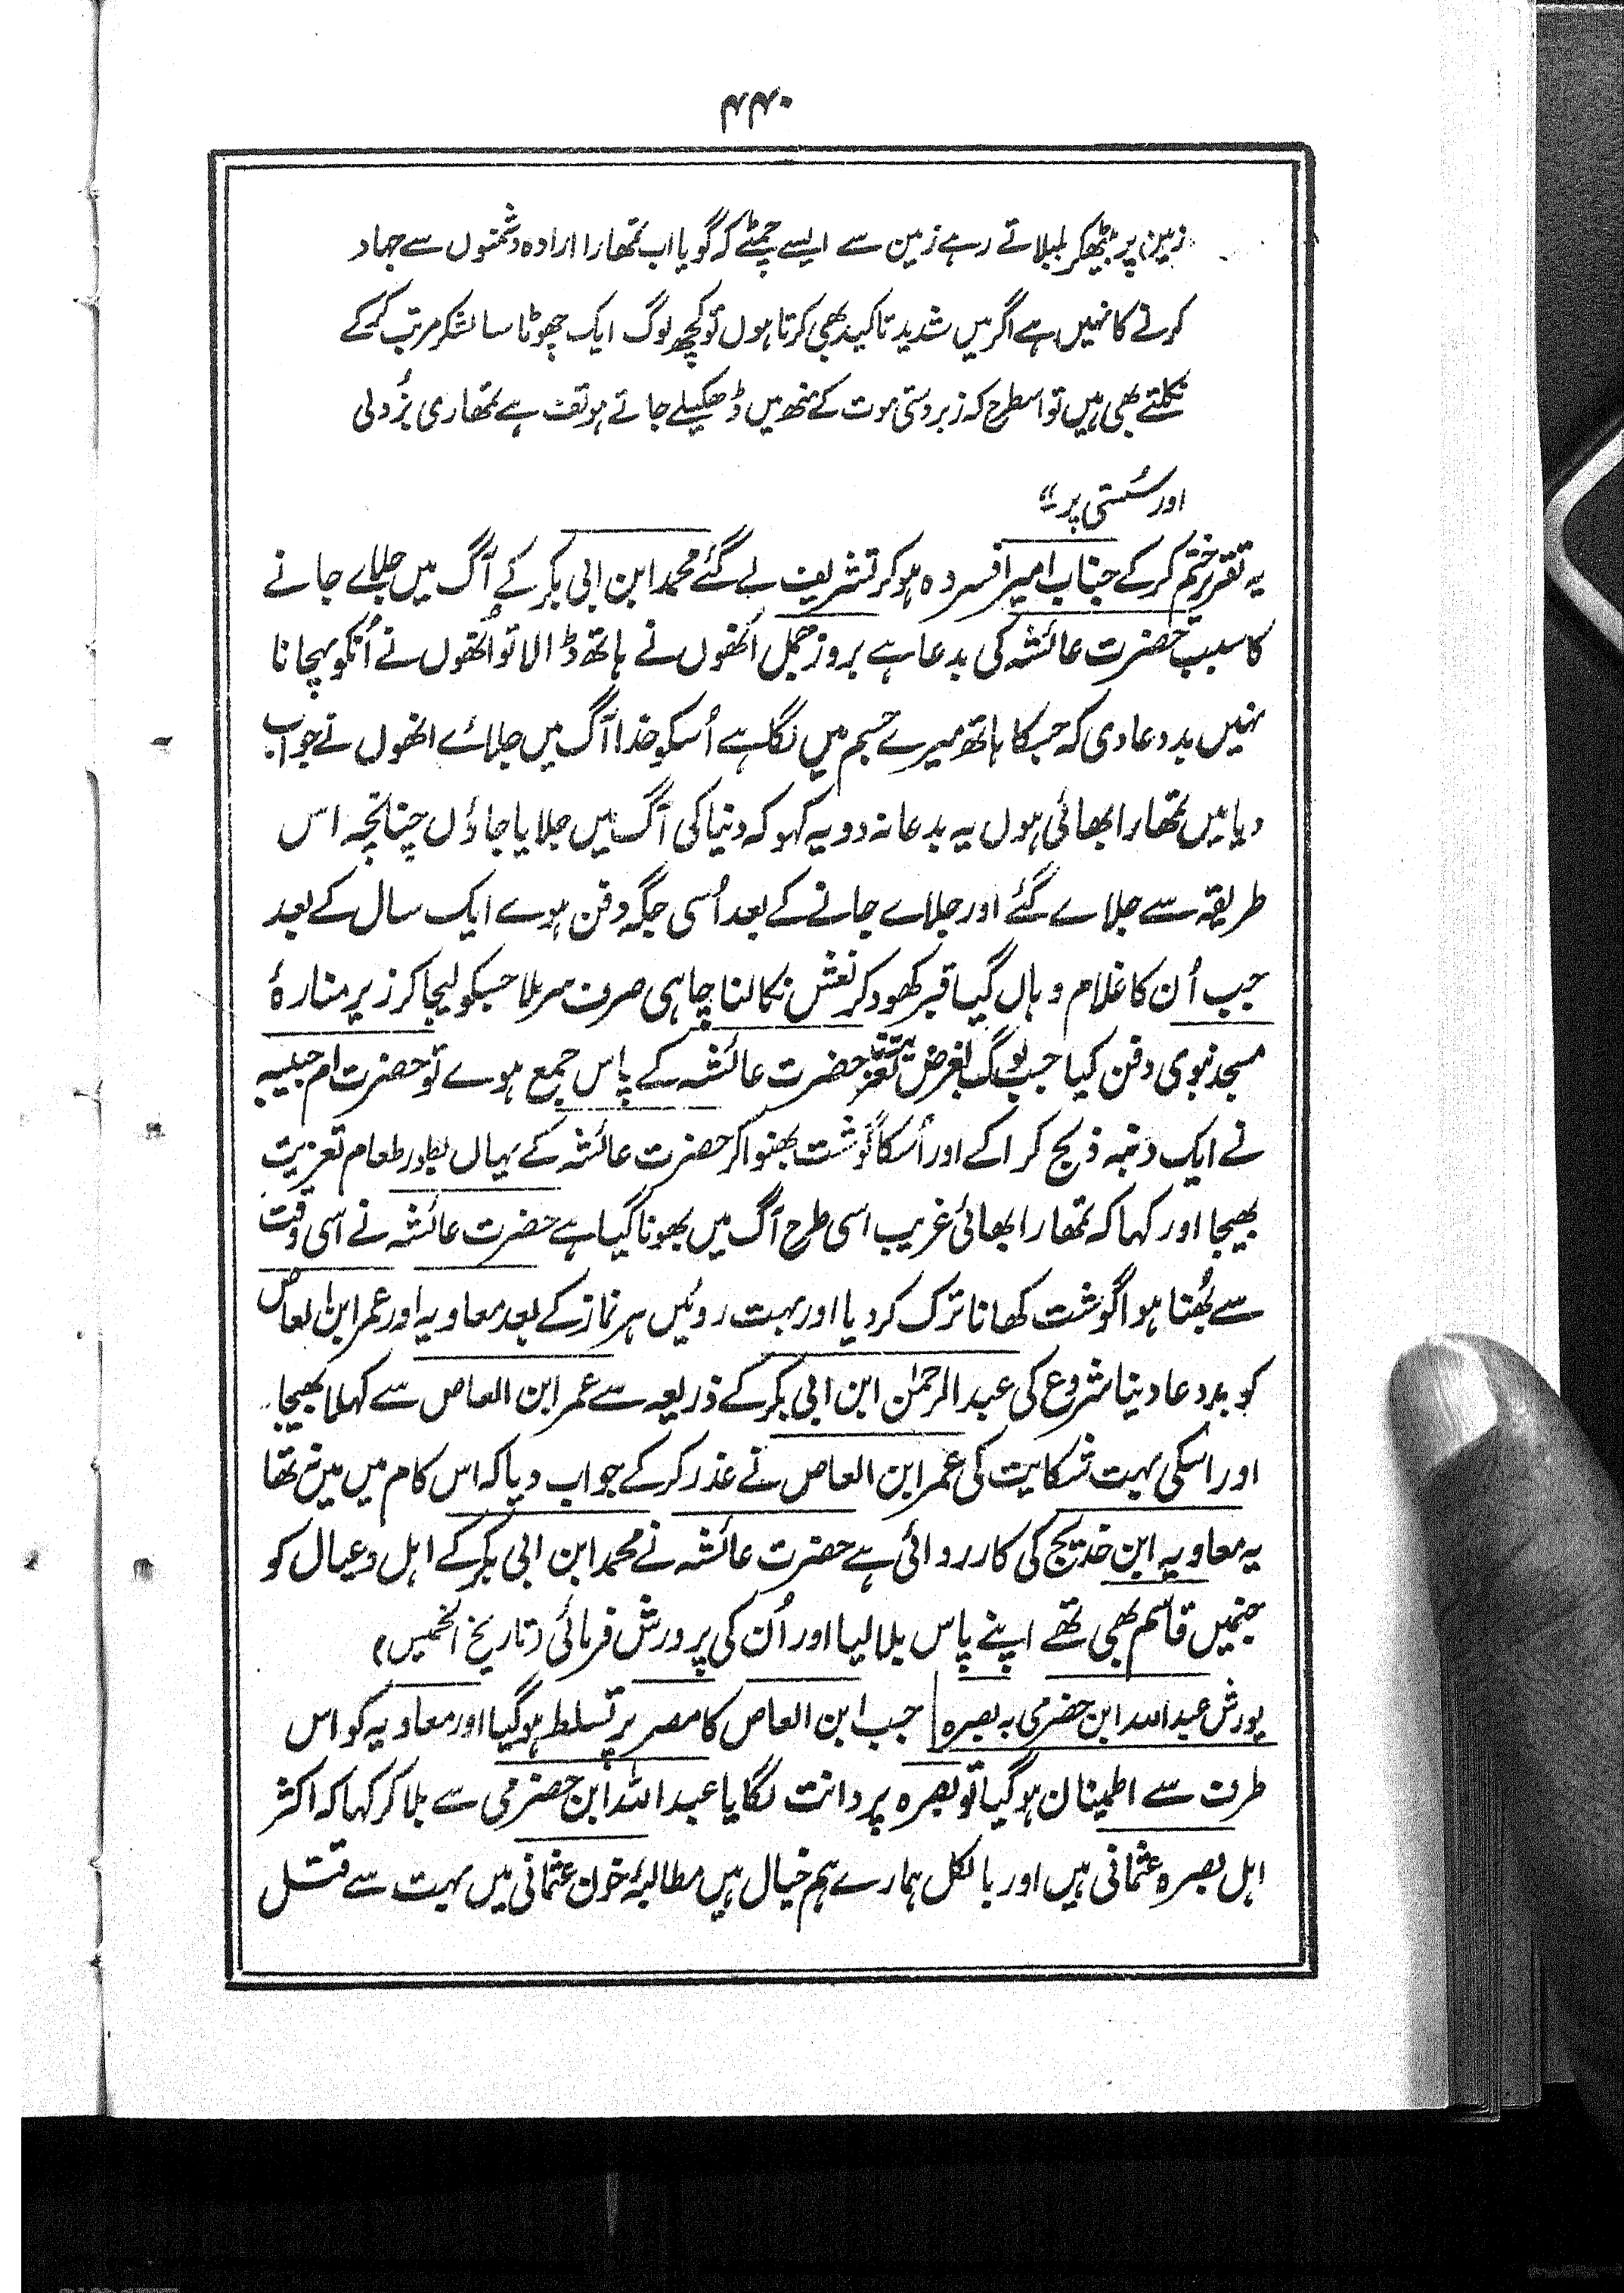 ۴۴۰
زمین پر بیٹھکر بلبلاتے رہے زمین سے ایسے چمٹے کہ گویا اب تمھارا ارادہ دشمنوں سے جہاد
کرنے کا نہیں ہے اگر میں شدید تاکید بھی کرتا ہوں تو کچھ لوگ ایک چھوٹا سا لشکر مرتب کرکے
نکلتے بھی ہیں تو اسطرح کہ زبردستی موت کے منھ میں ڈھکیلے جاتے ہو تف ہے تمھاری بُزدلی
اور سُستی پر"
یہ تقریر ختم کرکے جناب امیر افسردہ ہوکر تشریف لے گئے محمد ابن ابی بکر کے آگ میں جلاے جانے
کا سبب حضرت عائشہ کی بد عا ہے بروز جمل اُنھوں نے ہاتھ ڈالا تو اُنھوں نے اُنکو پہچانا
نہیں بد دعا دی کہ جسکا ہاتھ میرے جسم میں لگا ہے اُسکو خدا آگ میں جلائے انھوں نے جواب
دیا میں تمھارا بھائی ہوں یہ بد عا نہ دو یہ کہو کہ دنیا کی آگ میں جلایا جاؤں چنانچہ اس
طریقہ سے جلاے گئے اور جلاے جانے کے بعد اُسی جگہ دفن ہوے ایک سال کے بعد
جب اُن کا غلام وہاں گیا قبر کھود کر نعش نکالنا چاہی صرف سر ملا جسکو لیجا کر زیر منارۂ
مسجد نبوی دفن کیا جب لوگ بغرض تعزیت حضرت عائشہ کے پاس جمع ہوے تو حضرت ام حبیبہ
نے ایک دنبہ ذبح کراکے اور اُسکا گوشت بھنوا کر حضرت عائشہ کے یہاں بطور طعام تعزیت
بھیجا اور کہا کہ تمھارا بھائی غریب اسی طرح آگ میں بھونا گیا ہے حضرت عائشہ نے اسی وقت
سے بُھنا ہوا گوشت کھانا ترک کر دیا اور بہت روئیں ہر نماز کے بعد معاویہ اور عمر ابن العاص
کو بد دعا دینا شروع کی عبد الرحمٰن ابن ابی بکر کے ذریعہ سے عمر ابن العاص سے کہلا بھیجا
اور اسکی بہت شکایت کی عمر ابن العاص نے عذر کرکے جواب دیا کہ اس کام میں میں نہ تھا
یہ معاویہ ابن خدیج کی کارروائی ہے حضرت عائشہ نے محمد ابن ابی بکر کے اہل و عیال کو
جنمیں قاسم بھی تھے اپنے پاس بلا لیا اور اُن کی پرورش فرمائی (تاریخ الخمیس)
یورش عبد اللہ ابن حضرمی بہ بصرہ | جب ابن العاص کا مصر پر تسلط ہوگیا اور معاویہ کو اس
طرف سے اطمینان ہوگیا تو بصرہ پر دانت لگایا عبد اللہ ابن حضرمی سے بلا کر کہا کہ اکثر
اہل بصرہ عثمانی ہیں اور بالکل ہمارے ہم خیال ہیں مطالبۂ خون عثمانی میں بہت سے قتل